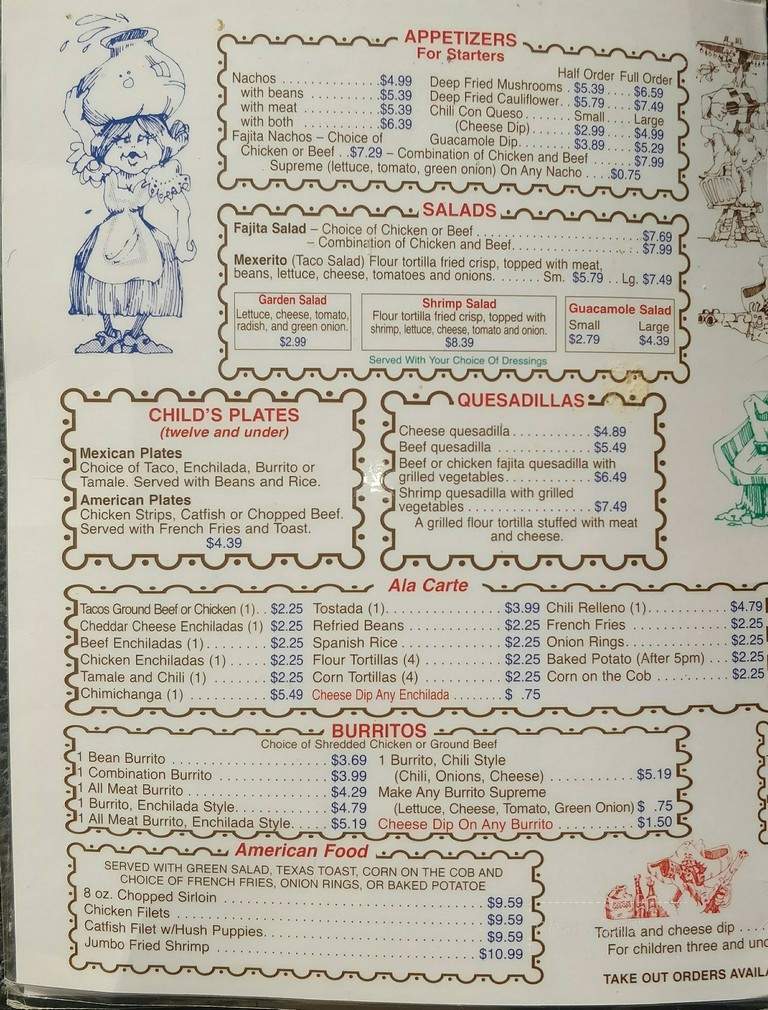 APPETIZERS
For Starters
Nachos . . . . . . . . . . . . . $4.99
with beans . . . . . . . . . . . $5.39
with meat . . . . . . . . . . . $5.39
with both . . . . . . . . . . . $6.39
Half Order Full Order
Deep Fried Mushrooms . $5.39 . . . . $6.59
Deep Fried Cauliflower . . $5.79 . . . . $7.49
Chili Con Queso . . . . . . . Small . . . . Large
(Cheese Dip) . . . . . $2.99 . . . . $4.99
Guacamole Dip. . . . . . . . $3.89 . . . . $5.29
Fajita Nachos – Choice of
Chicken or Beef . . $7.29 – Combination of Chicken and Beef . . . . . . $7.99
Supreme (lettuce, tomato, green onion) On Any Nacho . . . . $0.75
SALADS
Fajita Salad – Choice of Chicken or Beef . . . . . . . . . . . . . . . . . . . . $7.69
– Combination of Chicken and Beef. . . . . . . . . . . . . . . $7.99
Mexerito (Taco Salad) Flour tortilla fried crisp, topped with meat,
beans, lettuce, cheese, tomatoes and onions. . . . . . . Sm. $5.79 . . Lg. $7.49
Garden Salad
Lettuce, cheese, tomato,
radish, and green onion.
$2.99
Shrimp Salad
Flour tortilla fried crisp, topped with
shrimp, lettuce, cheese, tomato and onion.
$8.39
Guacamole Salad
Small Large
$2.79 $4.39
Served With Your Choice Of Dressings
CHILD'S PLATES
(twelve and under)
Mexican Plates
Choice of Taco, Enchilada, Burrito or
Tamale. Served with Beans and Rice.
American Plates
Chicken Strips, Catfish or Chopped Beef.
Served with French Fries and Toast.
$4.39
QUESADILLAS
Cheese quesadilla . . . . . . . . . . . $4.89
Beef quesadilla . . . . . . . . . . . . . $5.49
Beef or chicken fajita quesadilla with
grilled vegetables. . . . . . . . . . . . $6.49
Shrimp quesadilla with grilled
vegetables . . . . . . . . . . . . . . . . $7.49
A grilled flour tortilla stuffed with meat
and cheese.
Ala Carte
Tacos Ground Beef or Chicken (1). . $2.25
Cheddar Cheese Enchiladas (1) $2.25
Beef Enchiladas (1) . . . . . . . . . $2.25
Chicken Enchiladas (1) . . . . . . $2.25
Tamale and Chili (1) . . . . . . . . $2.25
Chimichanga (1) . . . . . . . . . . . $5.49
Tostada (1). . . . . . . . . . . . . . . $3.99
Refried Beans . . . . . . . . . . . . $2.25
Spanish Rice . . . . . . . . . . . . . $2.25
Flour Tortillas (4) . . . . . . . . . . $2.25
Corn Tortillas (4) . . . . . . . . . . $2.25
Cheese Dip Any Enchilada . . . . . . . $ .75
Chili Relleno (1) . . . . . . . . . . . $4.79
French Fries . . . . . . . . . . . . . $2.25
Onion Rings. . . . . . . . . . . . . . $2.25
Baked Potato (After 5pm) . . . $2.25
Corn on the Cob . . . . . . . . . . $2.25
BURRITOS
Choice of Shredded Chicken or Ground Beef
1 Bean Burrito . . . . . . . . . . . . . . . . . $3.69
1 Combination Burrito . . . . . . . . . . . $3.99
1 All Meat Burrito . . . . . . . . . . . . . . $4.29
1 Burrito, Enchilada Style. . . . . . . . . $4.79
1 All Meat Burrito, Enchilada Style. . . . . $5.19
1 Burrito, Chili Style
(Chili, Onions, Cheese) . . . . . . . . . . $5.19
Make Any Burrito Supreme
(Lettuce, Cheese, Tomato, Green Onion) $ .75
Cheese Dip On Any Burrito . . . . . . . . . $1.50
American Food
SERVED WITH GREEN SALAD, TEXAS TOAST, CORN ON THE COB AND
CHOICE OF FRENCH FRIES, ONION RINGS, OR BAKED POTATOE
8 oz. Chopped Sirloin . . . . . . . . . . . . . . . . . . . . . . . . $9.59
Chicken Filets . . . . . . . . . . . . . . . . . . . . . . . . . . . . . $9.59
Catfish Filet w/Hush Puppies. . . . . . . . . . . . . . . . . . . $9.59
Jumbo Fried Shrimp . . . . . . . . . . . . . . . . . . . . . . . . $10.99
Tortilla and cheese dip . . . .
For children three and und
TAKE OUT ORDERS AVAILA